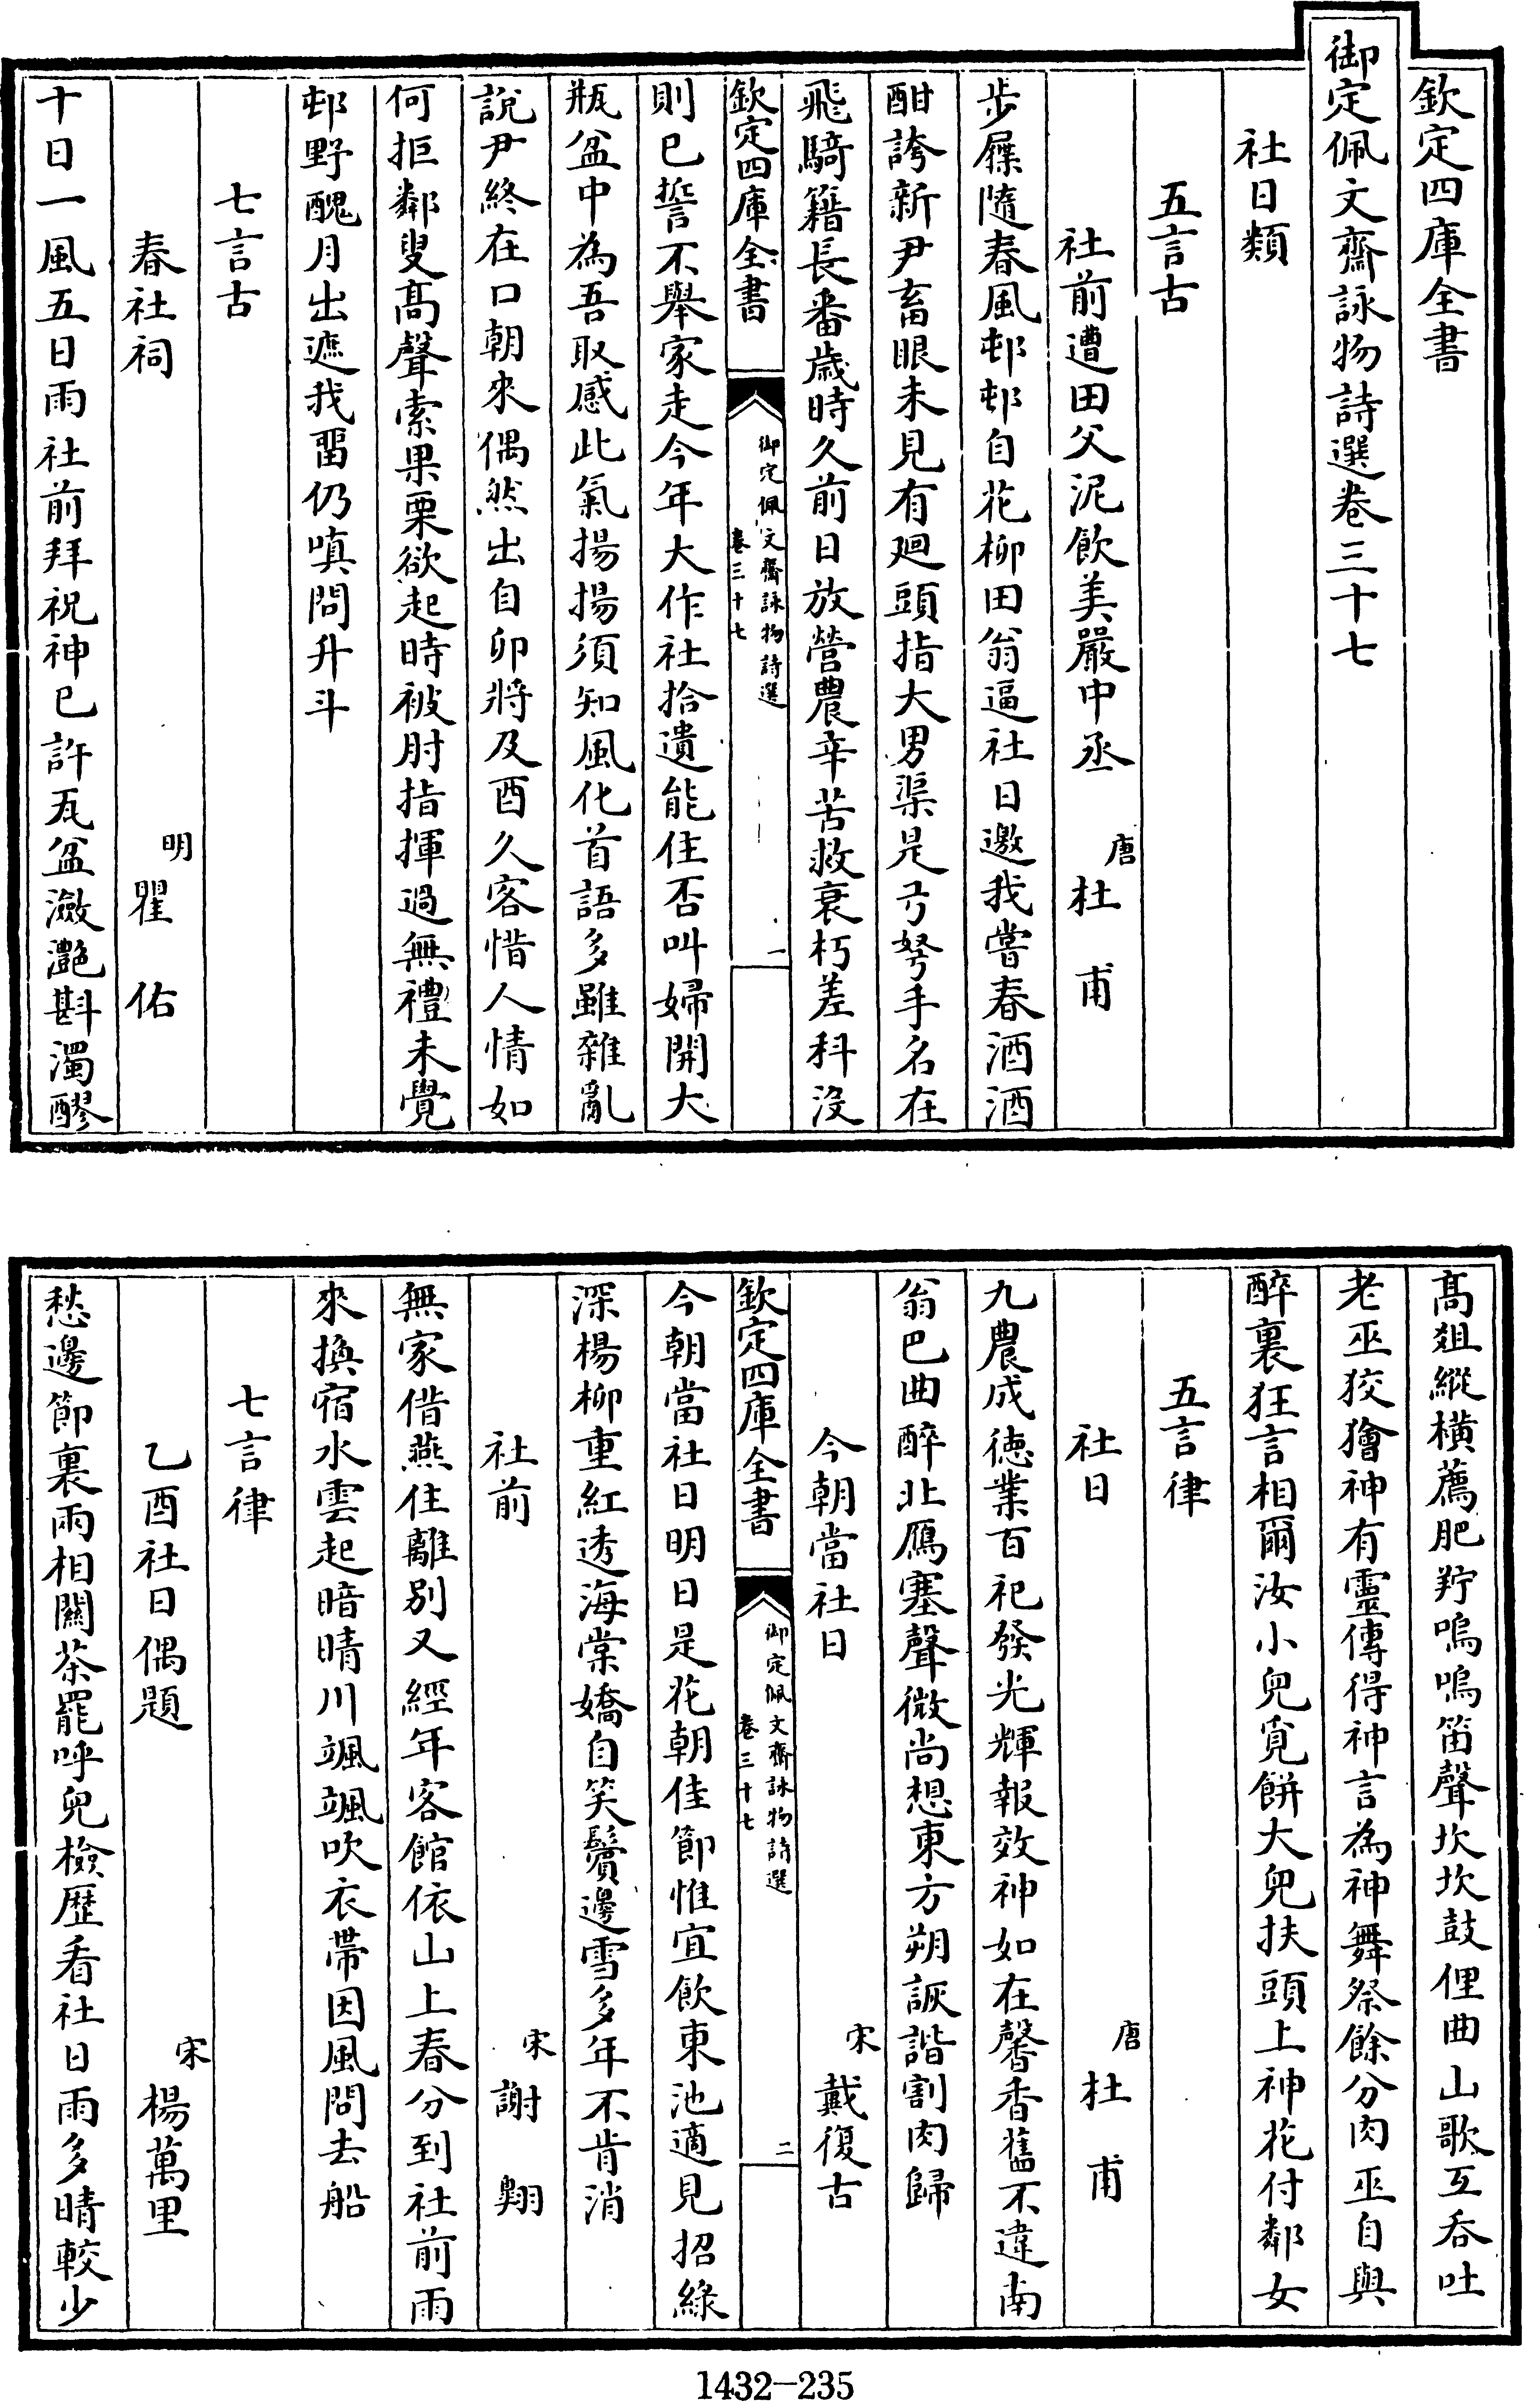 欽定四庫全書
御定佩文齋詠物詩選卷三十七
社日類
五言古
社前遭田父泥飲美嚴中丞 唐 杜甫
步屧隨春風邨邨自花柳田翁逼社日邀我嘗春酒酒
酣誇新尹畜眼未見有廻頭指大男渠是弓弩手名在
飛騎籍長番歲時久前日放營農辛苦救衰朽差科沒
欽定四庫全書 御定佩文齋詠物詩選 卷三十七 一
則已誓不舉家走今年大作社拾遺能住否叫婦開大
瓶盆中為吾取感此氣揚揚須知風化首語多雖雜亂
說尹終在口朝來偶然出自卯將及酉久客惜人情如
何拒鄰叟高聲索果栗欲起時被肘指揮過無禮未覺
邨野醜月出遮我畱仍嗔問升斗
七言古
春社祠 明 瞿佑
十日一風五日雨社前拜祝神已許瓦盆瀲灧斟濁醪
高俎縱橫薦肥羜嗚嗚笛聲坎坎鼓俚曲山歌互吞吐
老巫狡獪神有靈傳得神言為神舞祭餘分肉巫自與
醉裏狂言相爾汝小兒覓餅大兒扶頭上神花付鄰女
五言律
社日 唐 杜甫
九農成德業百祀發光輝報效神如在馨香舊不違南
翁巴曲醉北雁塞聲微尚想東方朔詼諧割肉歸
今朝當社日 宋 戴復古
欽定四庫全書 御定佩文齋詠物詩選 卷三十七 二
今朝當社日明日是花朝佳節惟宜飲東池適見招綠
深楊柳重紅透海棠嬌自笑鬢邊雪多年不肯消
社前 宋 謝翺
無家借燕住離別又經年客館依山上春分到社前雨
來換宿水雲起暗晴川颯颯吹衣帶因風問去船
七言律
乙酉社日偶題 宋 楊萬里
愁邊節裏兩相關茶罷呼兒檢歷看社日雨多晴較少
1432-235